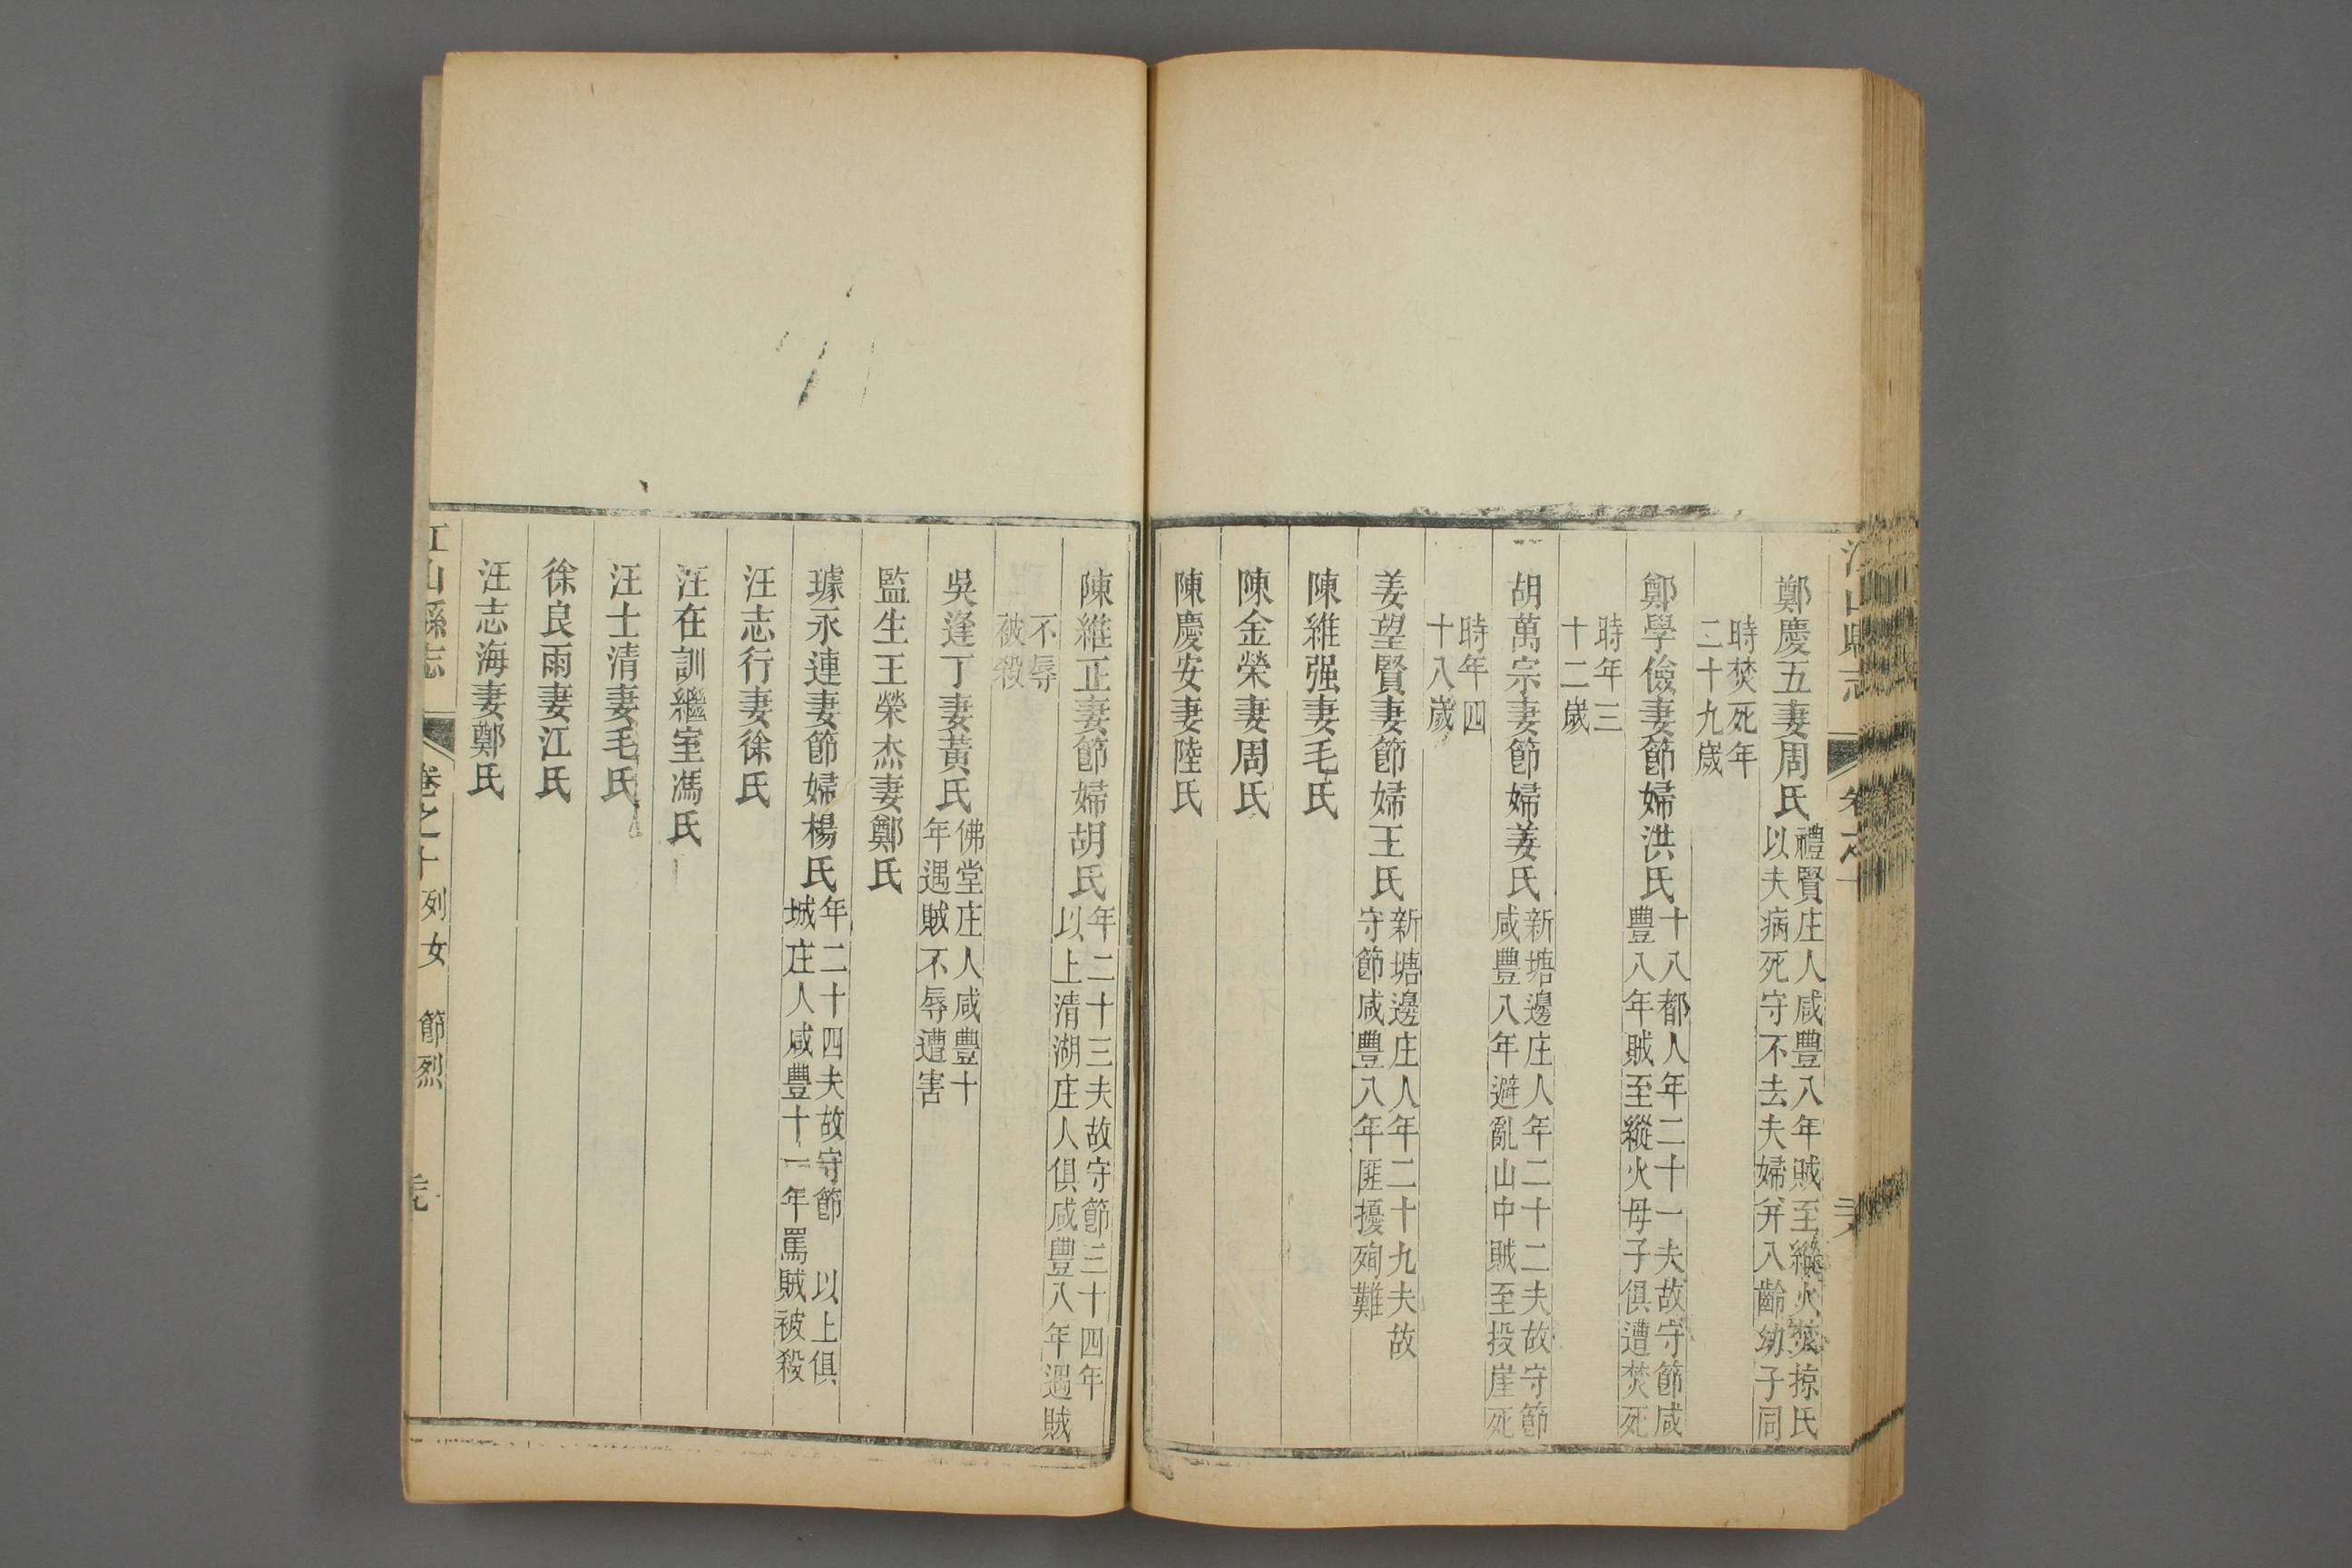 鄭慶五妻周氏禮賢庄人咸豐八年賊至縱火焚掠氏以夫病死守不去夫婦并入齡幼子同
時焚死年二十九歲
鄭學儉妻節婦洪氏十八都人年二十一夫故守節咸豐八年賊至縱火母子俱遭焚死
時年三十二歲
胡萬宗妻節婦姜氏新塘邊庄人年二十二夫故守節咸豐八年避亂山中賊至投崖死
時年四十八歲
姜望賢妻節婦王氏新塘邊庄人年二十九夫故守節咸豐八年匪擾殉難
陳維强妻毛氏
陳金榮妻周氏
陳慶安妻陸氏
陳維正妻節婦胡氏年二十三夫故守節三十四年以上清湖庄人俱咸豐八年遇賊
不辱被殺
吳逢丁妻黃氏佛堂庄人咸豐十年遇賊不辱遭害
監生王榮杰妻鄭氏
璩永連妻節婦楊氏年二十四夫故守節 以上俱城庄人咸豐十一年罵賊被殺
汪志行妻徐氏
汪在訓繼室馮氏
汪士清妻毛氏
徐良雨妻江氏
汪志海妻鄭氏
江山縣志 卷之十 列女 節烈